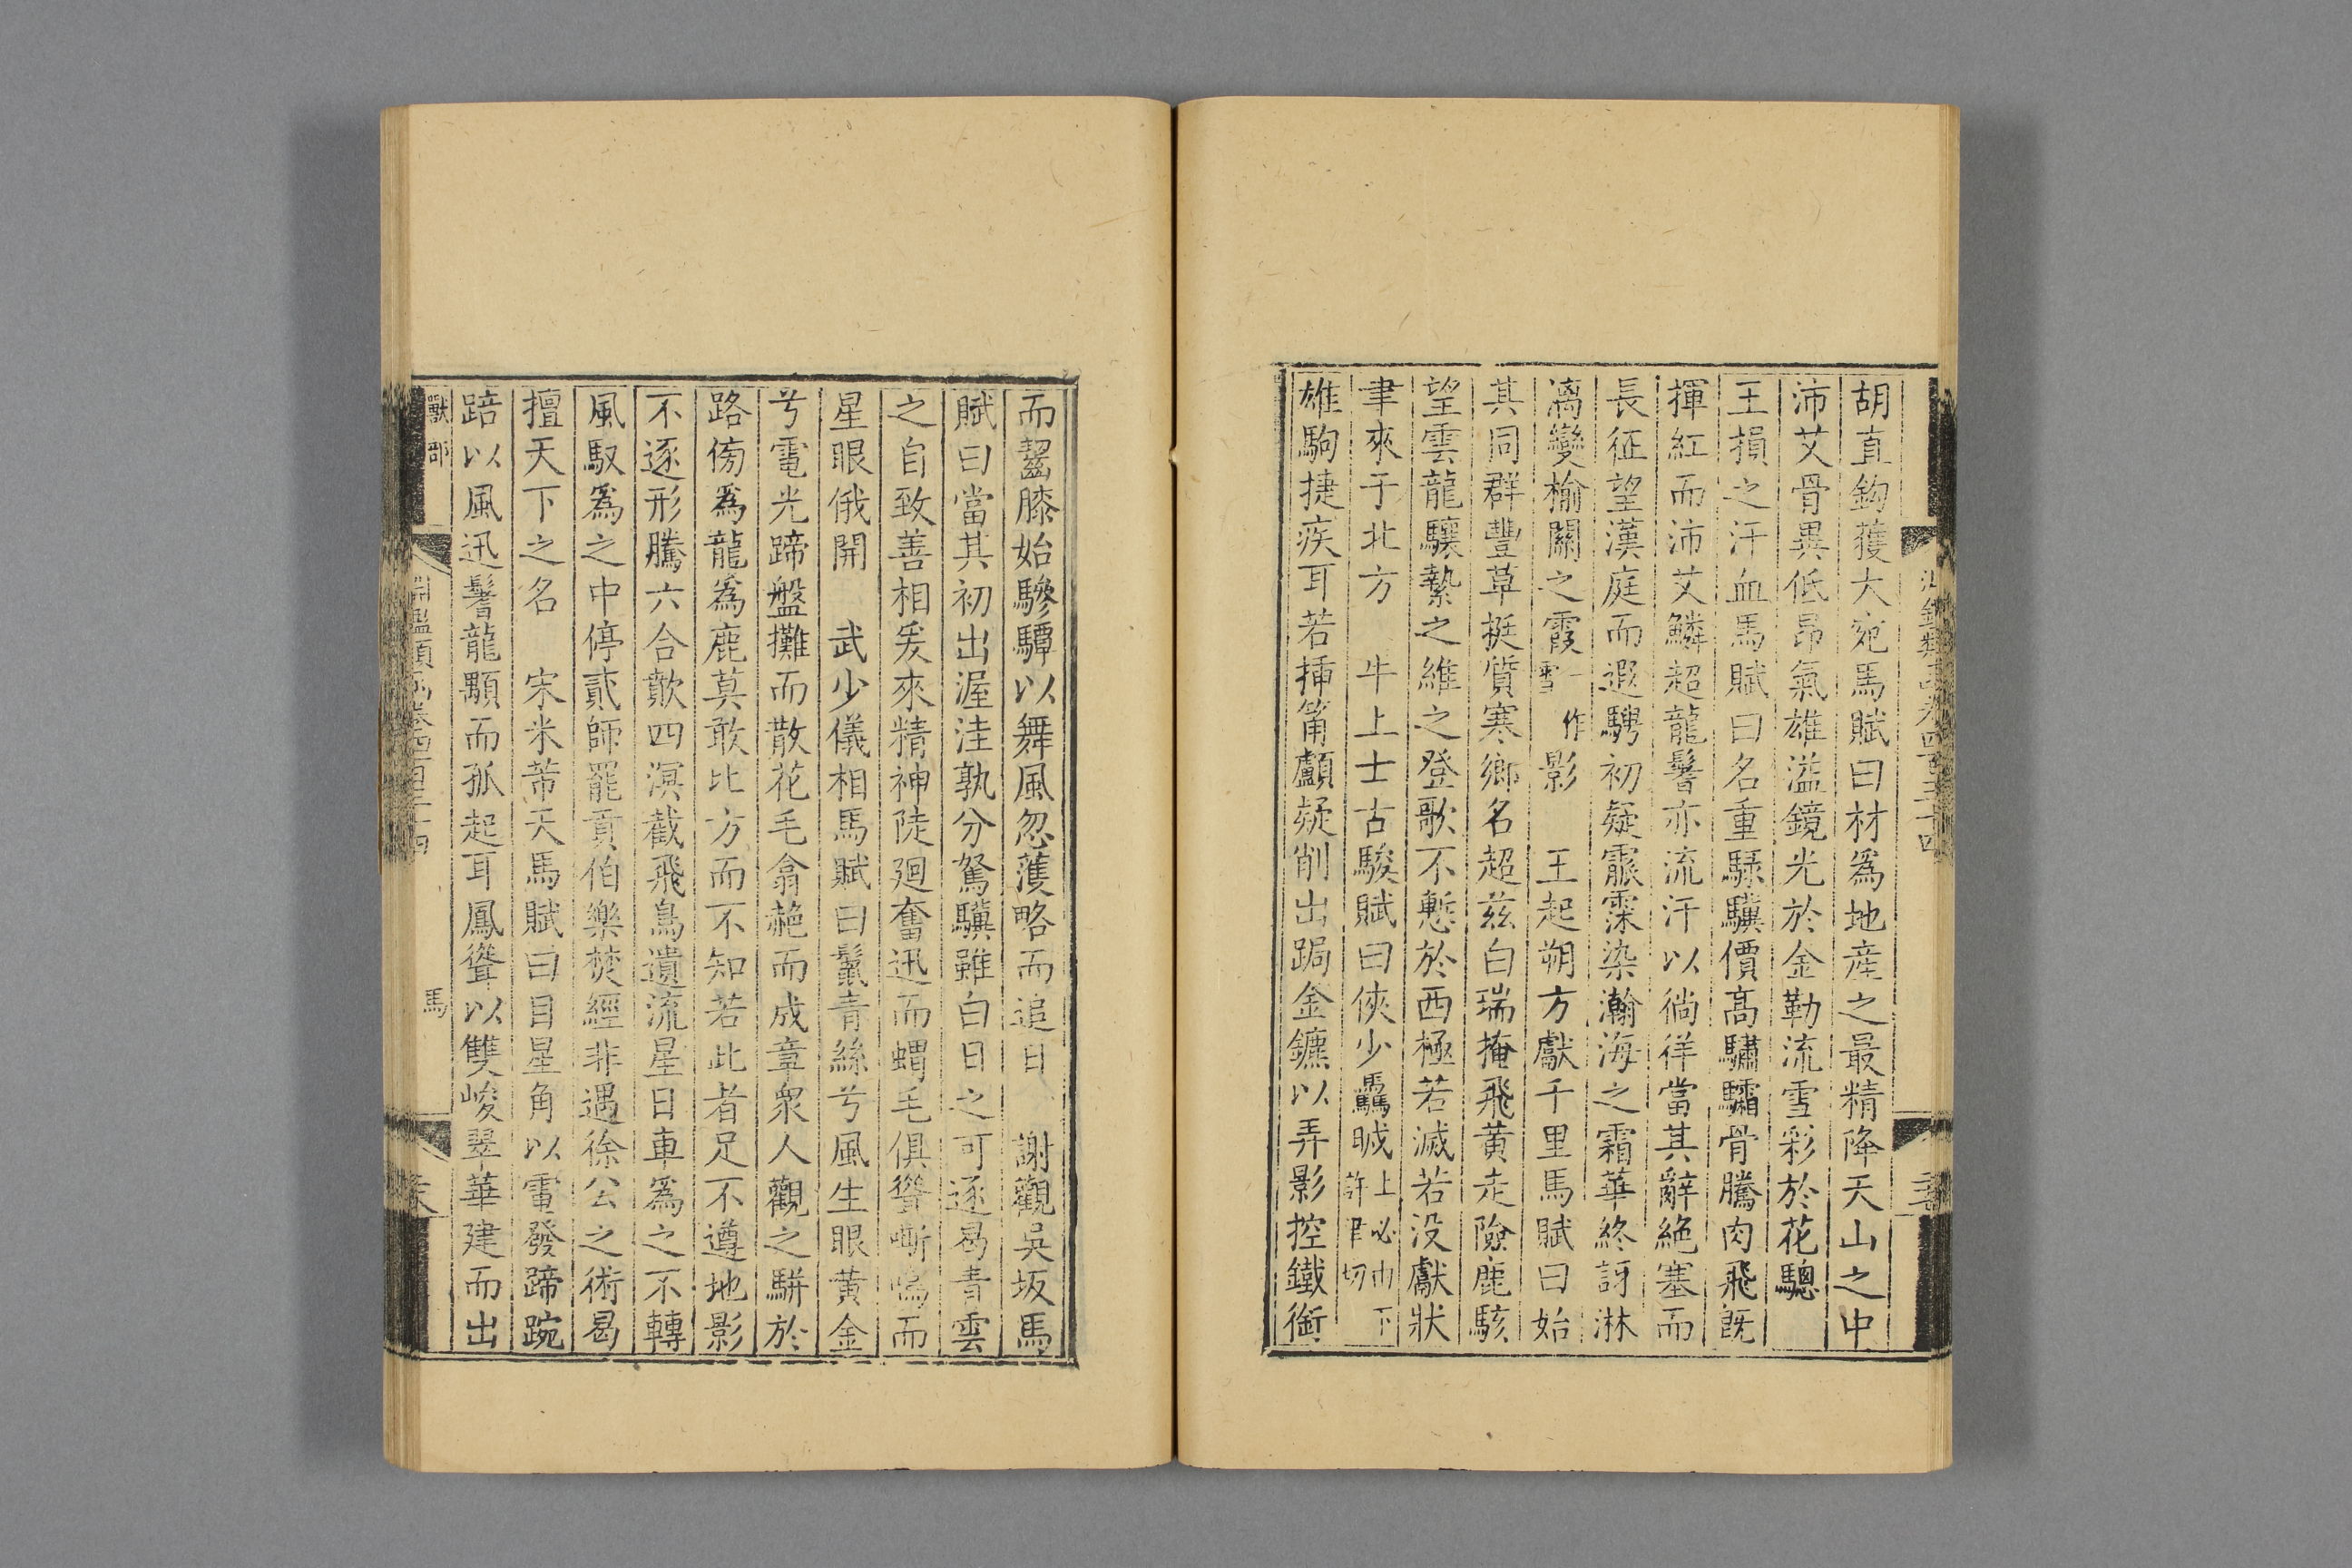 胡直鈎獲大宛馬賦曰材爲地産之最精降天山之中
沛艾骨異低昂氣雄溢鏡光於金勒流雪彩於花驄
王損之汗血馬賦曰名重騄驥價高驌驦骨騰肉飛旣
揮紅而沛艾鱗超龍鬐亦流汗以徜徉當其辭絶塞而
長征望漢庭而遐騁初疑霢霂染瀚海之霜華終訝淋
漓變榆關之霞一作雪影 王起朔方獻千里馬賦曰始
其同群豐草挺質寒鄉名超兹白瑞掩飛黄走險鹿駭
望雲龍驤縶之維之登歌不慙於西極若滅若没獻狀
聿來于北方 牛上士古駿賦曰俠少驫眓上必巾下許聿切
雄駒捷疾耳若揷筩顱疑削出跼金鑣以弄影控鐵銜
而齧膝始驂驔以舞風忽蒦略而追日 謝觀吳坂馬
賦曰當其初出渥洼孰分駑驥雖白日之可逐曷青雲
之自致善相爰來精神陡廻奮迅而蝟毛俱聳嘶鳴而
星眼俄開 武少儀相馬賦曰鬣青絲兮風生眼黄金
兮電光蹄盤攤而散花毛翕赩而成章衆人觀之駢於
路傍爲龍爲鹿莫敢比方而不知若此者足不遵地影
不逐形騰六合歕四溟截飛鳥遺流星日車爲之不轉
風馭爲之中停貳師罷貢伯樂焚經非遇徐公之術曷
擅天下之名 宋米芾天馬賦曰目星角以電發蹄踠
踣以風迅鬐龍顒而孤起耳鳳聳以雙峻翠華建而出
獸部
淵鑑類函卷四百三十四
馬